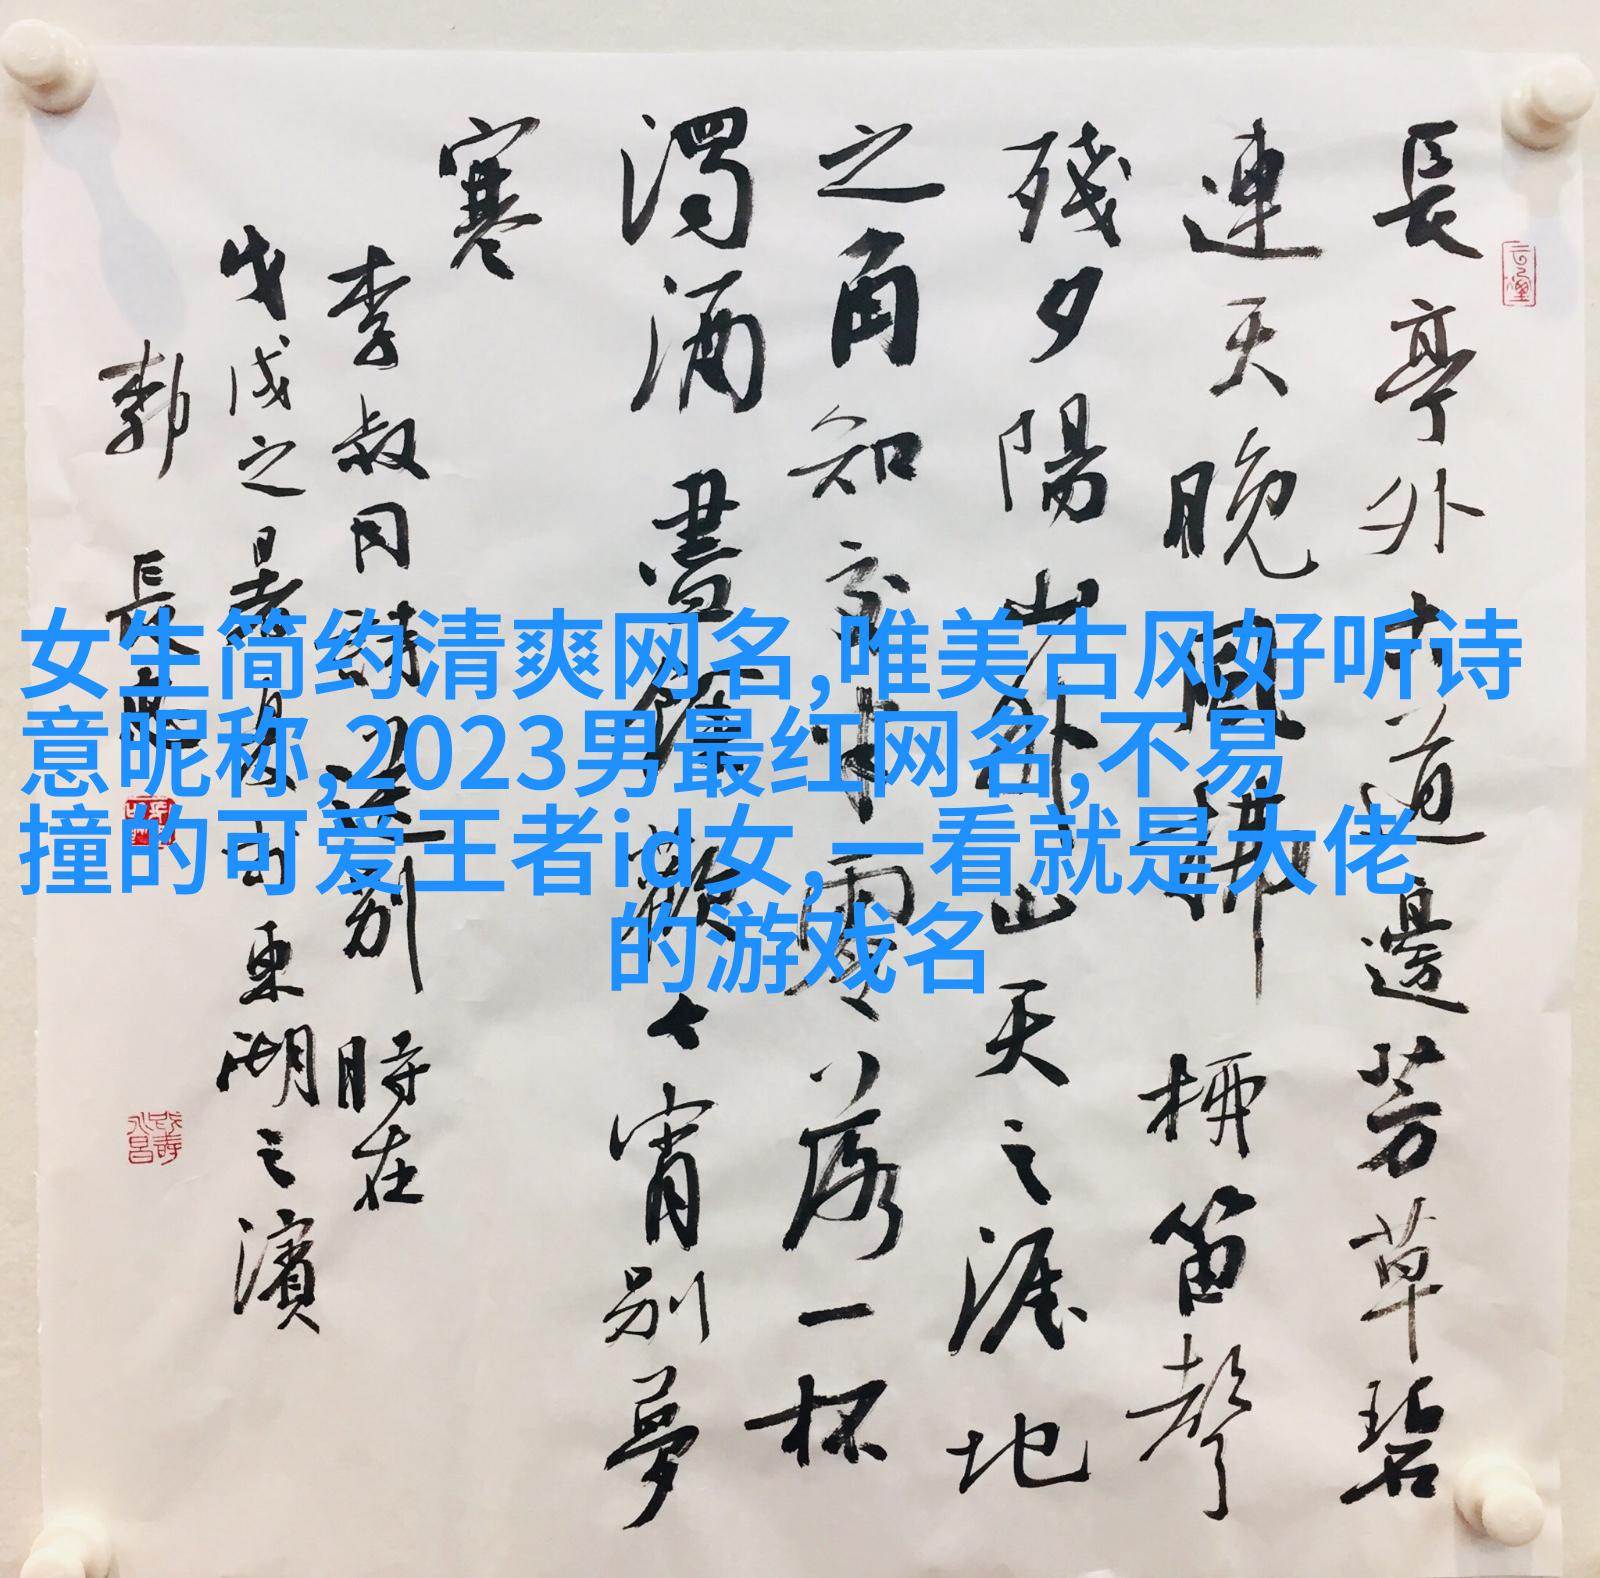 長亭外古道邊芳草碧
連天晚風拂柳笛聲
殘夕陽山外山天之涯地
之角知交半零落一杯
濁酒盡餘歡今宵別夢
寒
李叔同詩送别時在
戊戌之暑夏東湖之濱
郭長
女生简约清爽网名,唯美古风好听诗
意昵称,2023男最红网名,不易
撞的可爱王者id女,一看就是大佬
的游戏名